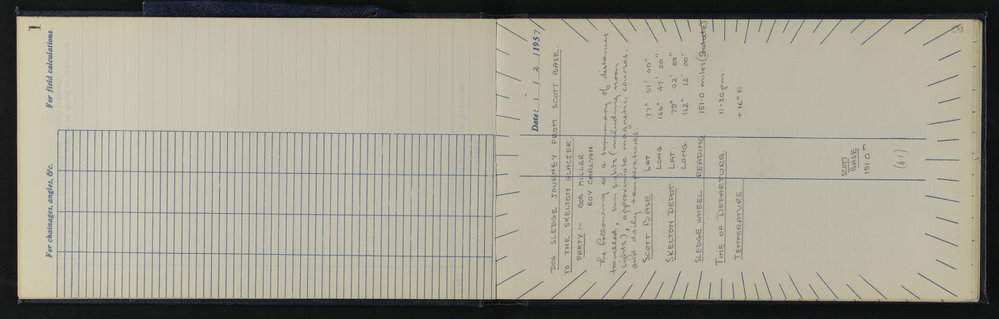 1
For field calculations.
For chainages, angles, &c.
Date: 1 / 2 / 1957
DOG SLEDGE JOURNEY FROM SCOTT BASE
TO THE SKELTON GLACIER
PARTY :- BOB MILLER
ROY CARLYON
The following is a summary of distances
travelled, sun sights (including noon
sights), approximate magnetic courses.
and daily temperatures.
SCOTT BASE LAT. 77° 51' 00"
LONG. 166° 47' 00"
SKELTON DEPOT LAT. 79° 02' 00"
LONG. 162° 12' 00"
SLEDGE WHEEL READING 151.0 miles (Statute)
TIME OF DEPARTURE 11-30 p.m.
TEMPERATURE + 16° F
SCOTT
BASE
151.0 m
(61)